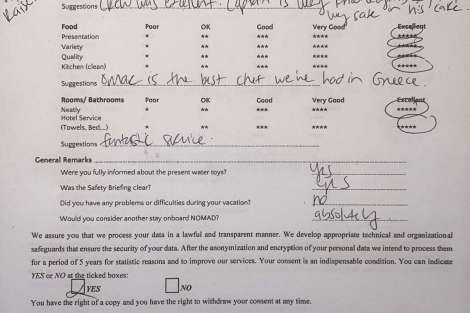 Suggestions Crew was excellent. Captain is very
very safe on his
Food Poor OK Good Very Good Excellent
Presentation * ** *** **** *****
Variety * ** *** **** *****
Quality * ** *** **** *****
Kitchen (clean) * ** *** **** *****
Suggestions Omac is the best chef we've had in Greece.
Rooms/ Bathrooms Poor OK Good Very Good Excellent
Neatly * ** *** **** *****
Hotel Service
(Towels, Bed...) * ** *** **** *****
Suggestions fantastic service.
General Remarks
Were you fully informed about the present water toys? yes
Was the Safety Briefing clear? yes
Did you have any problems or difficulties during your vacation? no
Would you consider another stay onboard NOMAD? absolutely
We assure you that we process your data in a lawful and transparent manner. We develop appropriate technical and organizational
safeguards that ensure the security of your data. After the anonymization and encryption of your personal data we intend to process them
for a period of 5 years for statistic reasons and to improve our services. Your consent is an indispensable condition. You can indicate
YES or NO at the ticked boxes:
YES NO
You have the right of a copy and you have the right to withdraw your consent at any time.